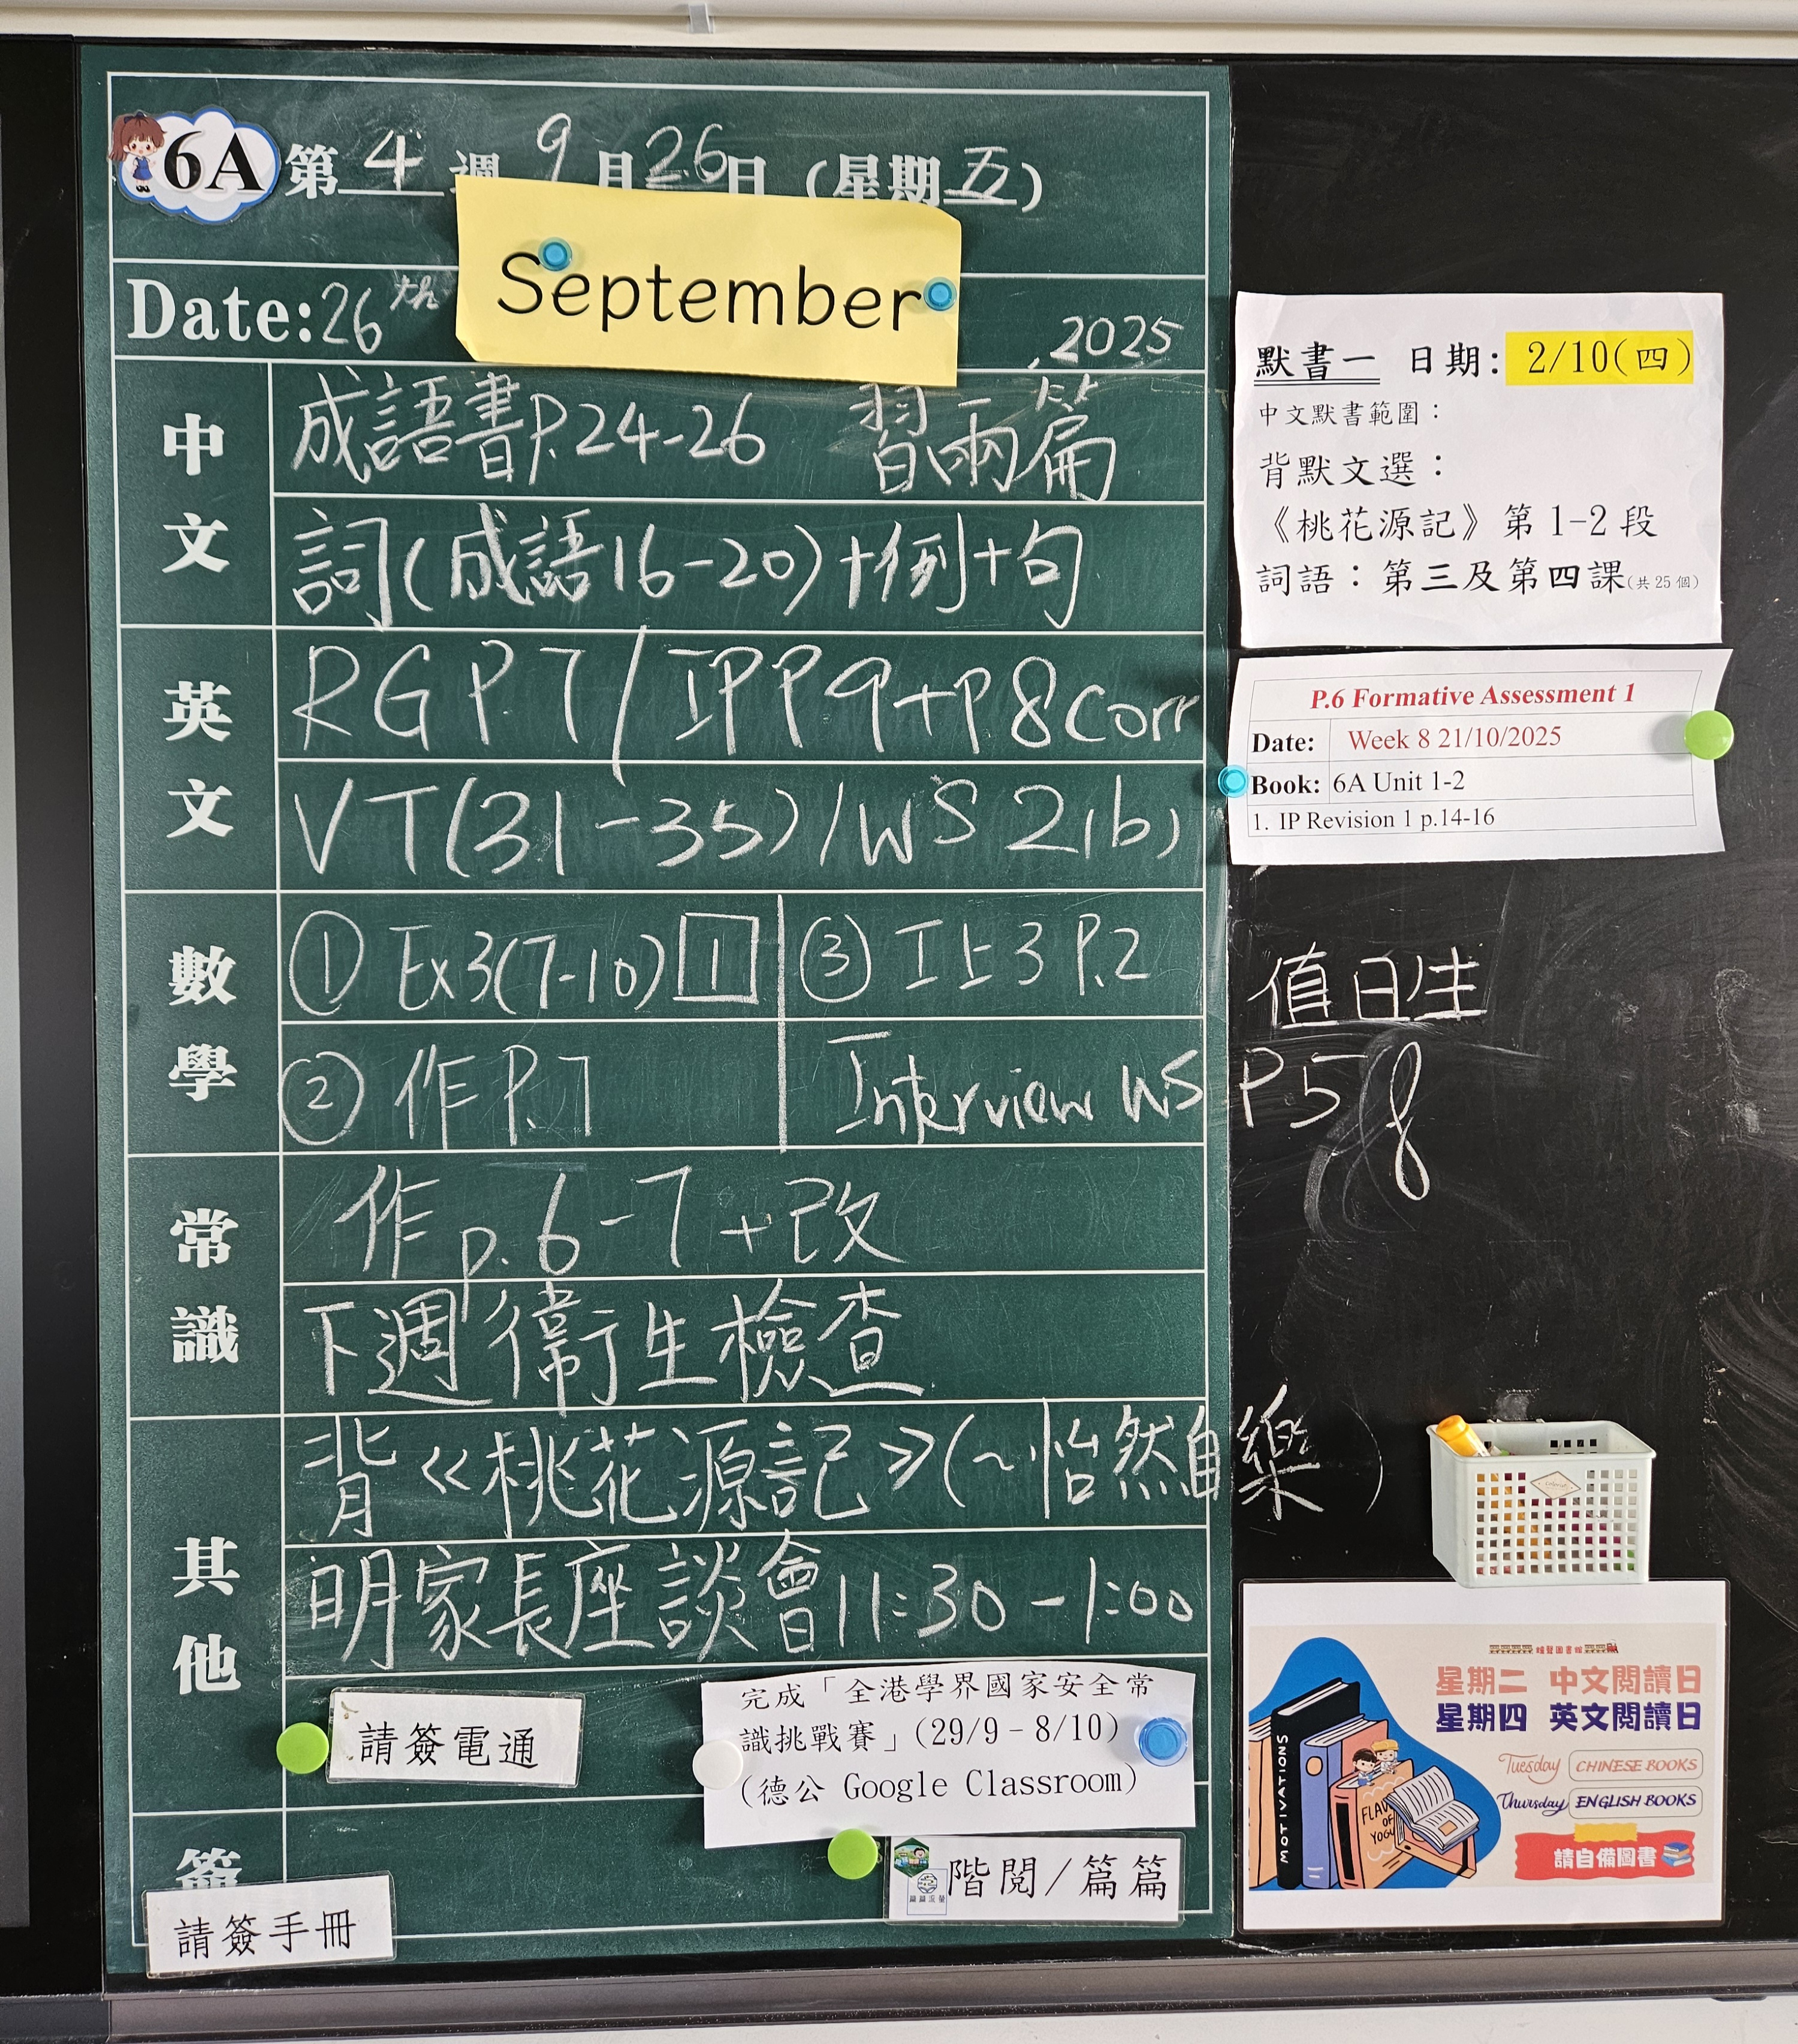 6A 第 4 週 9 月 26 日 (星期五)
September
Date: 26th , 2025
中文
成語書P.24-26 習兩篇
詞(成語16-20)+例+句
英文
RG P.7 / IP P9+P8 Corr
VT(31-35) / WS 2(b)
數學
① Ex3(7-10) 1
③ 工上3 P.2
② 作 P.7
Interview WS P.5
常識
作 p.6-7 +改
下週衞生檢查
其他
背《桃花源記》(~怡然自樂)
明家長座談會11:30-1:00
請簽電通
完成「全港學界國家安全常
識挑戰賽」(29/9 – 8/10)
(德公 Google Classroom)
階閱/篇篇
篇篇流螢
請簽手冊
默書一 日期: 2/10(四)
中文默書範圍：
背默文選：
《桃花源記》第 1-2 段
詞語：第三及第四課(共 25 個)
P.6 Formative Assessment 1
Date: Week 8 21/10/2025
Book: 6A Unit 1-2
1. IP Revision 1 p.14-16
值日生
8
星期二 中文閱讀日
星期四 英文閱讀日
Tuesday CHINESE BOOKS
Thursday ENGLISH BOOKS
請自備圖書
MOTIVATIONS